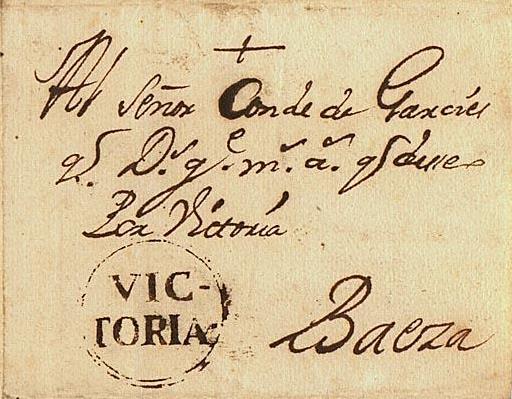 Al Señor Conde de Garcies
qᵉ Dˢ gᵉ mˢ aˢ qᵉ desseo
Por Victoria
VIC-
TORIA.
Baeza